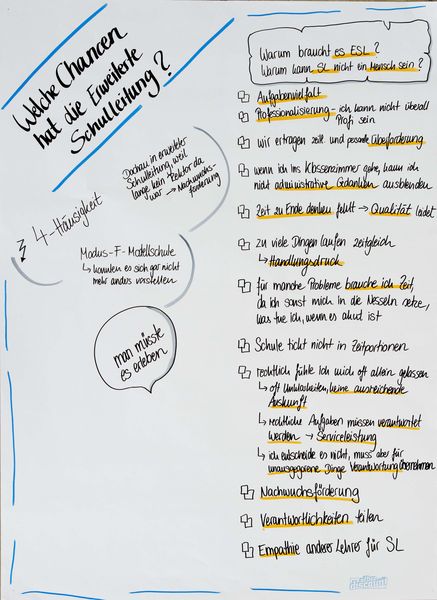 Welche Chancen
hat die Erweiterte
Schulleitung?
Dachau in erweiterter
Schulleitung, weil
lange kein Rektor da
war → Nachwuchs-
förderung
4-Häusigkeit
Modus-F-Modellschule
↳ konnten es sich gar nicht
mehr anders vorstellen
man müsste
es erleben
Warum braucht es ESL?
Warum kann SL nicht ein Mensch sein?
Aufgabenvielfalt
Professionalisierung - ich kann nicht überall
Profi sein
wir ertragen zeit und Überforderung
wenn ich ins Klassenzimmer gehe, kann ich
nicht administrative Gedanken ausblenden
Zeit zu Ende denken fehlt → Qualität leidet
zu viele Dingen laufen zeitgleich
↳ Handlungsdruck
für manche Probleme brauche ich Zeit,
da ich sonst mich in die Nesseln setze,
was tue ich, wenn es akut ist
Schule tickt nicht in Zeitportionen
rechtlich fühle ich mich oft allein gelassen
↳ oft Unklarheiten, keine ausreichende
Auskunft
↳ rechtliche Aufgaben müssen verantwortet
werden → Serviceleistung
↳ ich entscheide es nicht, muss aber für
unausgegorene Dinge Verantwortung übernehmen
Nachwuchsförderung
Verantwortlichkeiten teilen
Empathie anderer Lehrer für SL
discount